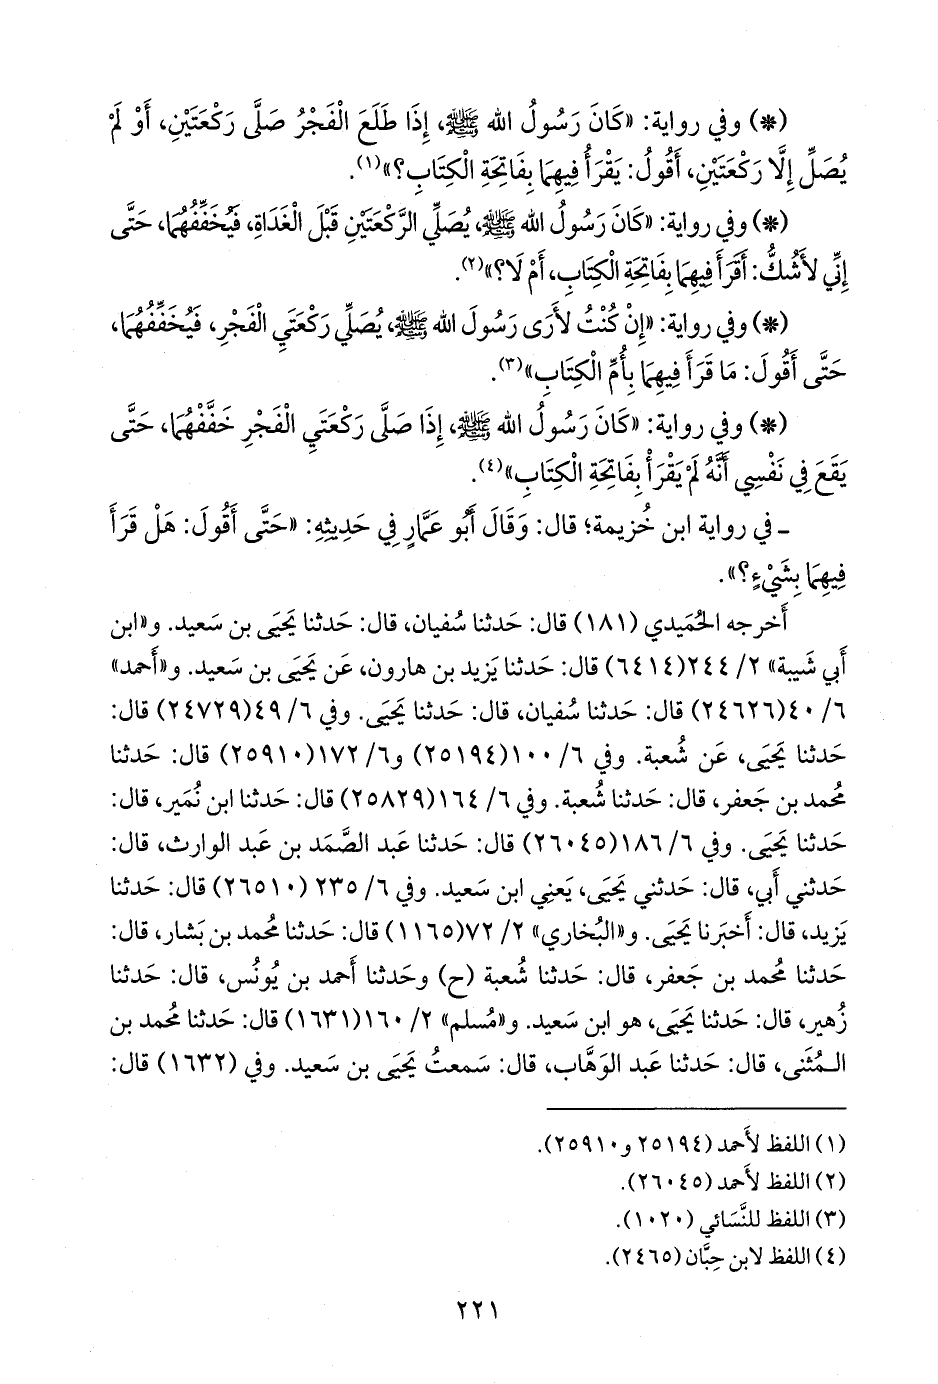 (*) وفي رواية: «كَانَ رَسُولُ الله ﷺ، إِذَا طَلَعَ الْفَجْرُ صَلَّى رَكْعَتَيْنِ، أَوْ لَمْ
يُصَلِّ إِلَّا رَكْعَتَيْنِ، أَقُولُ: يَقْرَأُ فِيهِمَا بِفَاتِحَةِ الْكِتَابِ؟»(١).
(*) وفي رواية: «كَانَ رَسُولُ الله ﷺ، يُصَلِّي الرَّكْعَتَيْنِ قَبْلَ الْغَدَاةِ، فَيُخَفِّفُهُمَا، حَتَّى
إِنِّي لأَشُكُّ: أَقَرَأَ فِيهِمَا بِفَاتِحَةِ الْكِتَابِ، أَمْ لَا؟»(٢).
(*) وفي رواية: «إِنْ كُنْتُ لأَرَى رَسُولَ الله ﷺ، يُصَلِّي رَكْعَتَيِ الْفَجْرِ، فَيُخَفِّفُهُمَا،
حَتَّى أَقُولَ: مَا قَرَأَ فِيهِمَا بِأُمِّ الْكِتَابِ»(٣).
(*) وفي رواية: «كَانَ رَسُولُ الله ﷺ، إِذَا صَلَّى رَكْعَتَيِ الْفَجْرِ خَفَّفْهُمَا، حَتَّى
يَقَعَ فِي نَفْسِي أَنَّهُ لَمْ يَقْرَأْ بِفَاتِحَةِ الْكِتَابِ»(٤).
ـ في رواية ابن خُزيمة؛ قال: وَقَالَ أَبُو عَمَّارٍ فِي حَدِيثِهِ: «حَتَّى أَقُولَ: هَلْ قَرَأَ
فِيهِمَا بِشَيْءٍ؟».
أَخرجه الحُمَيدي (١٨١) قال: حَدثنا سُفيان، قال: حَدثنا يَحيَى بن سَعيد. و«ابن
أَبي شَيبة» ٢/ ٢٤٤(٦٤١٤) قال: حَدثنا يَزيد بن هارون، عَن يَحيَى بن سَعيد. و«أَحمد»
٦/ ٤٠(٢٤٦٢٦) قال: حَدثنا سُفيان، قال: حَدثنا يَحيَى. وفي ٦/ ٤٩(٢٤٧٢٩) قال:
حَدثنا يَحيَى، عَن شُعبة. وفي ٦/ ١٠٠(٢٥١٩٤) و٦/ ١٧٢(٢٥٩١٠) قال: حَدثنا
مُحمد بن جَعفر، قال: حَدثنا شُعبة. وفي ٦/ ١٦٤(٢٥٨٢٩) قال: حَدثنا ابن نُمَير، قال:
حَدثنا يَحيَى. وفي ٦/ ١٨٦(٢٦٠٤٥) قال: حَدثنا عَبد الصَّمَد بن عَبد الوارث، قال:
حَدثني أَبي، قال: حَدثني يَحيَى، يَعنِي ابن سَعيد. وفي ٦/ ٢٣٥ (٢٦٥١٠) قال: حَدثنا
يَزيد، قال: أَخبَرنا يَحيَى. و«البُخاري» ٢/ ٧٢(١١٦٥) قال: حَدثنا مُحمد بن بَشار، قال:
حَدثنا مُحمد بن جَعفر، قال: حَدثنا شُعبة (ح) وحَدثنا أَحمد بن يُونُس، قال: حَدثنا
زُهير، قال: حَدثنا يَحيَى، هو ابن سَعيد. و«مُسلم» ٢/ ١٦٠(١٦٣١) قال: حَدثنا مُحمد بن
الـمُثَنى، قال: حَدثنا عَبد الوَهَّاب، قال: سَمعتُ يَحيَى بن سَعيد. وفي (١٦٣٢) قال:
(١) اللفظ لأَحمد (٢٥١٩٤ و٢٥٩١٠).
(٢) اللفظ لأَحمد (٢٦٠٤٥).
(٣) اللفظ للنَّسَائي (١٠٢٠).
(٤) اللفظ لابن حِبَّان (٢٤٦٥).
٢٢١